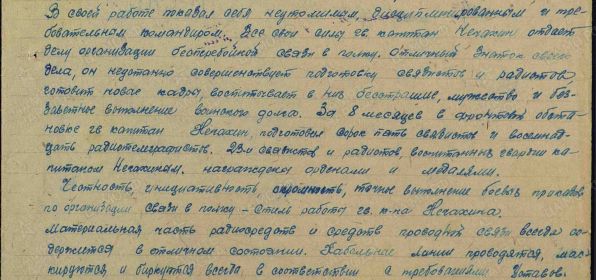 В своей работе показал себя неутомимым, дисциплинированным и тре-
бовательном командиром. Все свои силы гв. капитан Нечахин отдает
делу организации бесперебойной связи в полку. Отличный знаток своего
дела, он неустанно совершенствует подготовку связистов и радистов
готовит новые кадры, воспитывает в них бесстрашие, мужество и без-
заветное выполнение воинского долга. За 8 месяцев в фронтовой обста-
новке гв капитан Нечахин, подготовил сорок пять связистов и восемнад-
цать радиотелеграфистов. 23-и связистов и радистов, воспитанных гвардии ка-
питаном Нечахиным, награждены орденами и медалями.
Честность, инициативность, скромность, точное выполнение боевых приказов
по организации связи в полку - стиль работы гв. к-на Нечахина.
Материальная часть радиосредств и средств проводной связи всегда со-
держится в отличном состоянии. Кабельные линии проводятся, мас-
кируются и биркуются всегда в соответствии с требованиями Уставов.